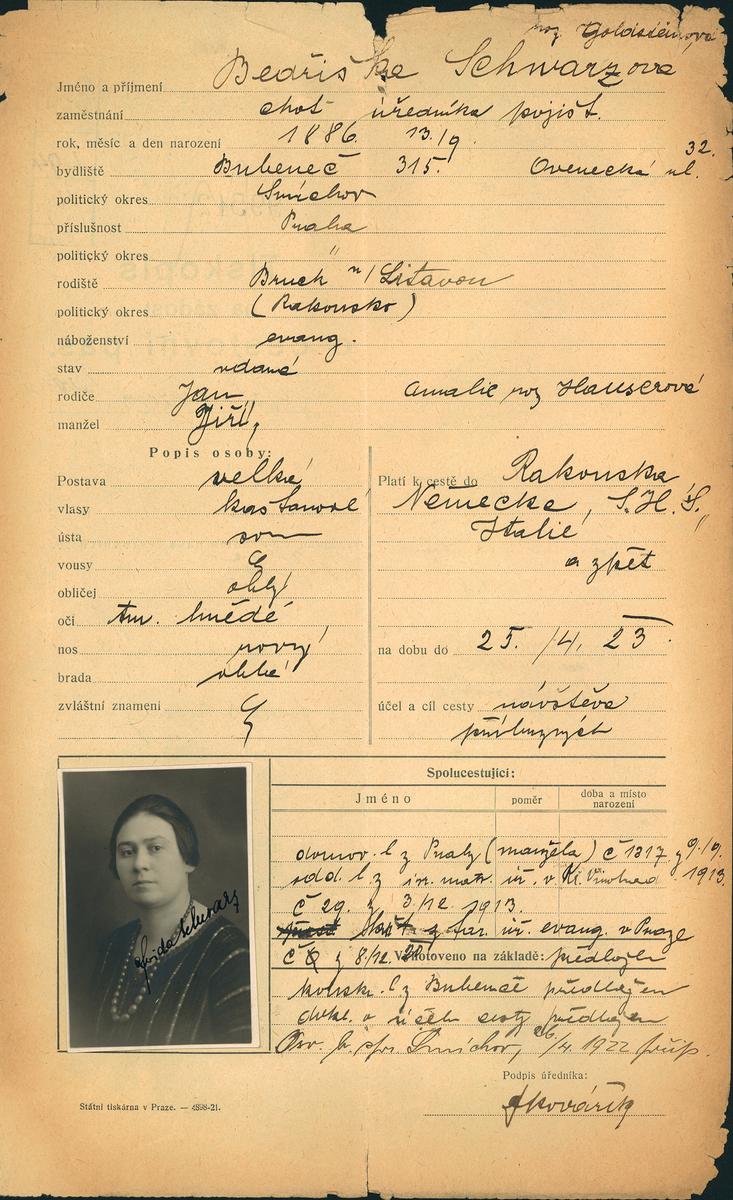 roz Goldsteinová
Jméno a příjmení Bedřiška Schwarzova
zaměstnání choť úředníka pojišt.
rok, měsíc a den narození 1886. 13./9.
32.
bydliště Bubeneč 315. Ovenecká ul.
politický okres Smíchov
příslušnost Praha
politický okres "
rodiště Bruck n/Litavou
politický okres (Rakousko)
náboženství evang.
stav vdaná
rodiče Jan Amalie roz Hauserová
manžel Jiří
Popis osoby:
Postava velká
vlasy kaštanové
ústa
vousy
obličej oblý
oči tm. hnědé
nos rovný
brada oblá
zvláštní znamení
Platí k cestě do Rakouska
Německa, S.H.S,
Italie
a zpět
na dobu do 25. /4. 23
účel a cíl cesty návštěva
příbuzných
Spolucestující:
Jméno poměr doba a místo narození
domov. l z Prahy (manžela) č 1317 z 9./9.
odd. l z iz. matr. úř. v Kr. Vinohrad 1913.
č 29. z 3/12 1913.
z far. úř. evang. v Praze
č z 8./12. 20 Vyhotoveno na základě: předložen
konskr. l z Bubenče předložen
dokl. o účelu cesty předložen
Smíchov, 26/4. 1922
Podpis úředníka:
Kovářík
Frida Schwarz
Státní tiskárna v Praze. — 4898-21.